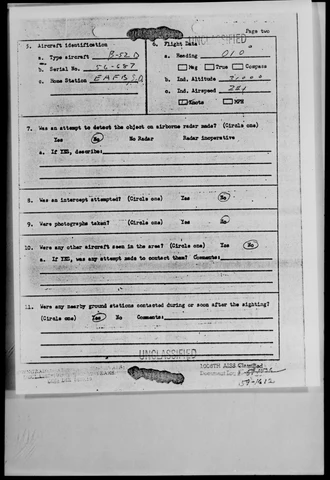 Page two
UNCLASSIFIED
5. Aircraft identification
a. Type aircraft B-52 D
b. Serial No. 56-687
c. Home Station EAFB S.D.
6. Flight Data
a. Heading 010°
Mag True Compass
b. Ind. Altitude
c. Ind. Airspeed
Knots MPH
7. Was an attempt to detect the object on airborne radar made? (Circle one)
Yes No No Radar Radar inoperative
a. If YES, describe:
8. Was an intercept attempted? (Circle one) Yes No
9. Were photographs taken? (Circle one) Yes No
10. Were any other aircraft seen in the area? (Circle one) Yes No
a. If YES, was any attempt made to contact them? Comments:
11. Were any nearby ground stations contacted during or soon after the sighting?
(Circle one) Yes No Comments:
UNCLASSIFIED
1006TH AISS Classified
Document No.
59-1612